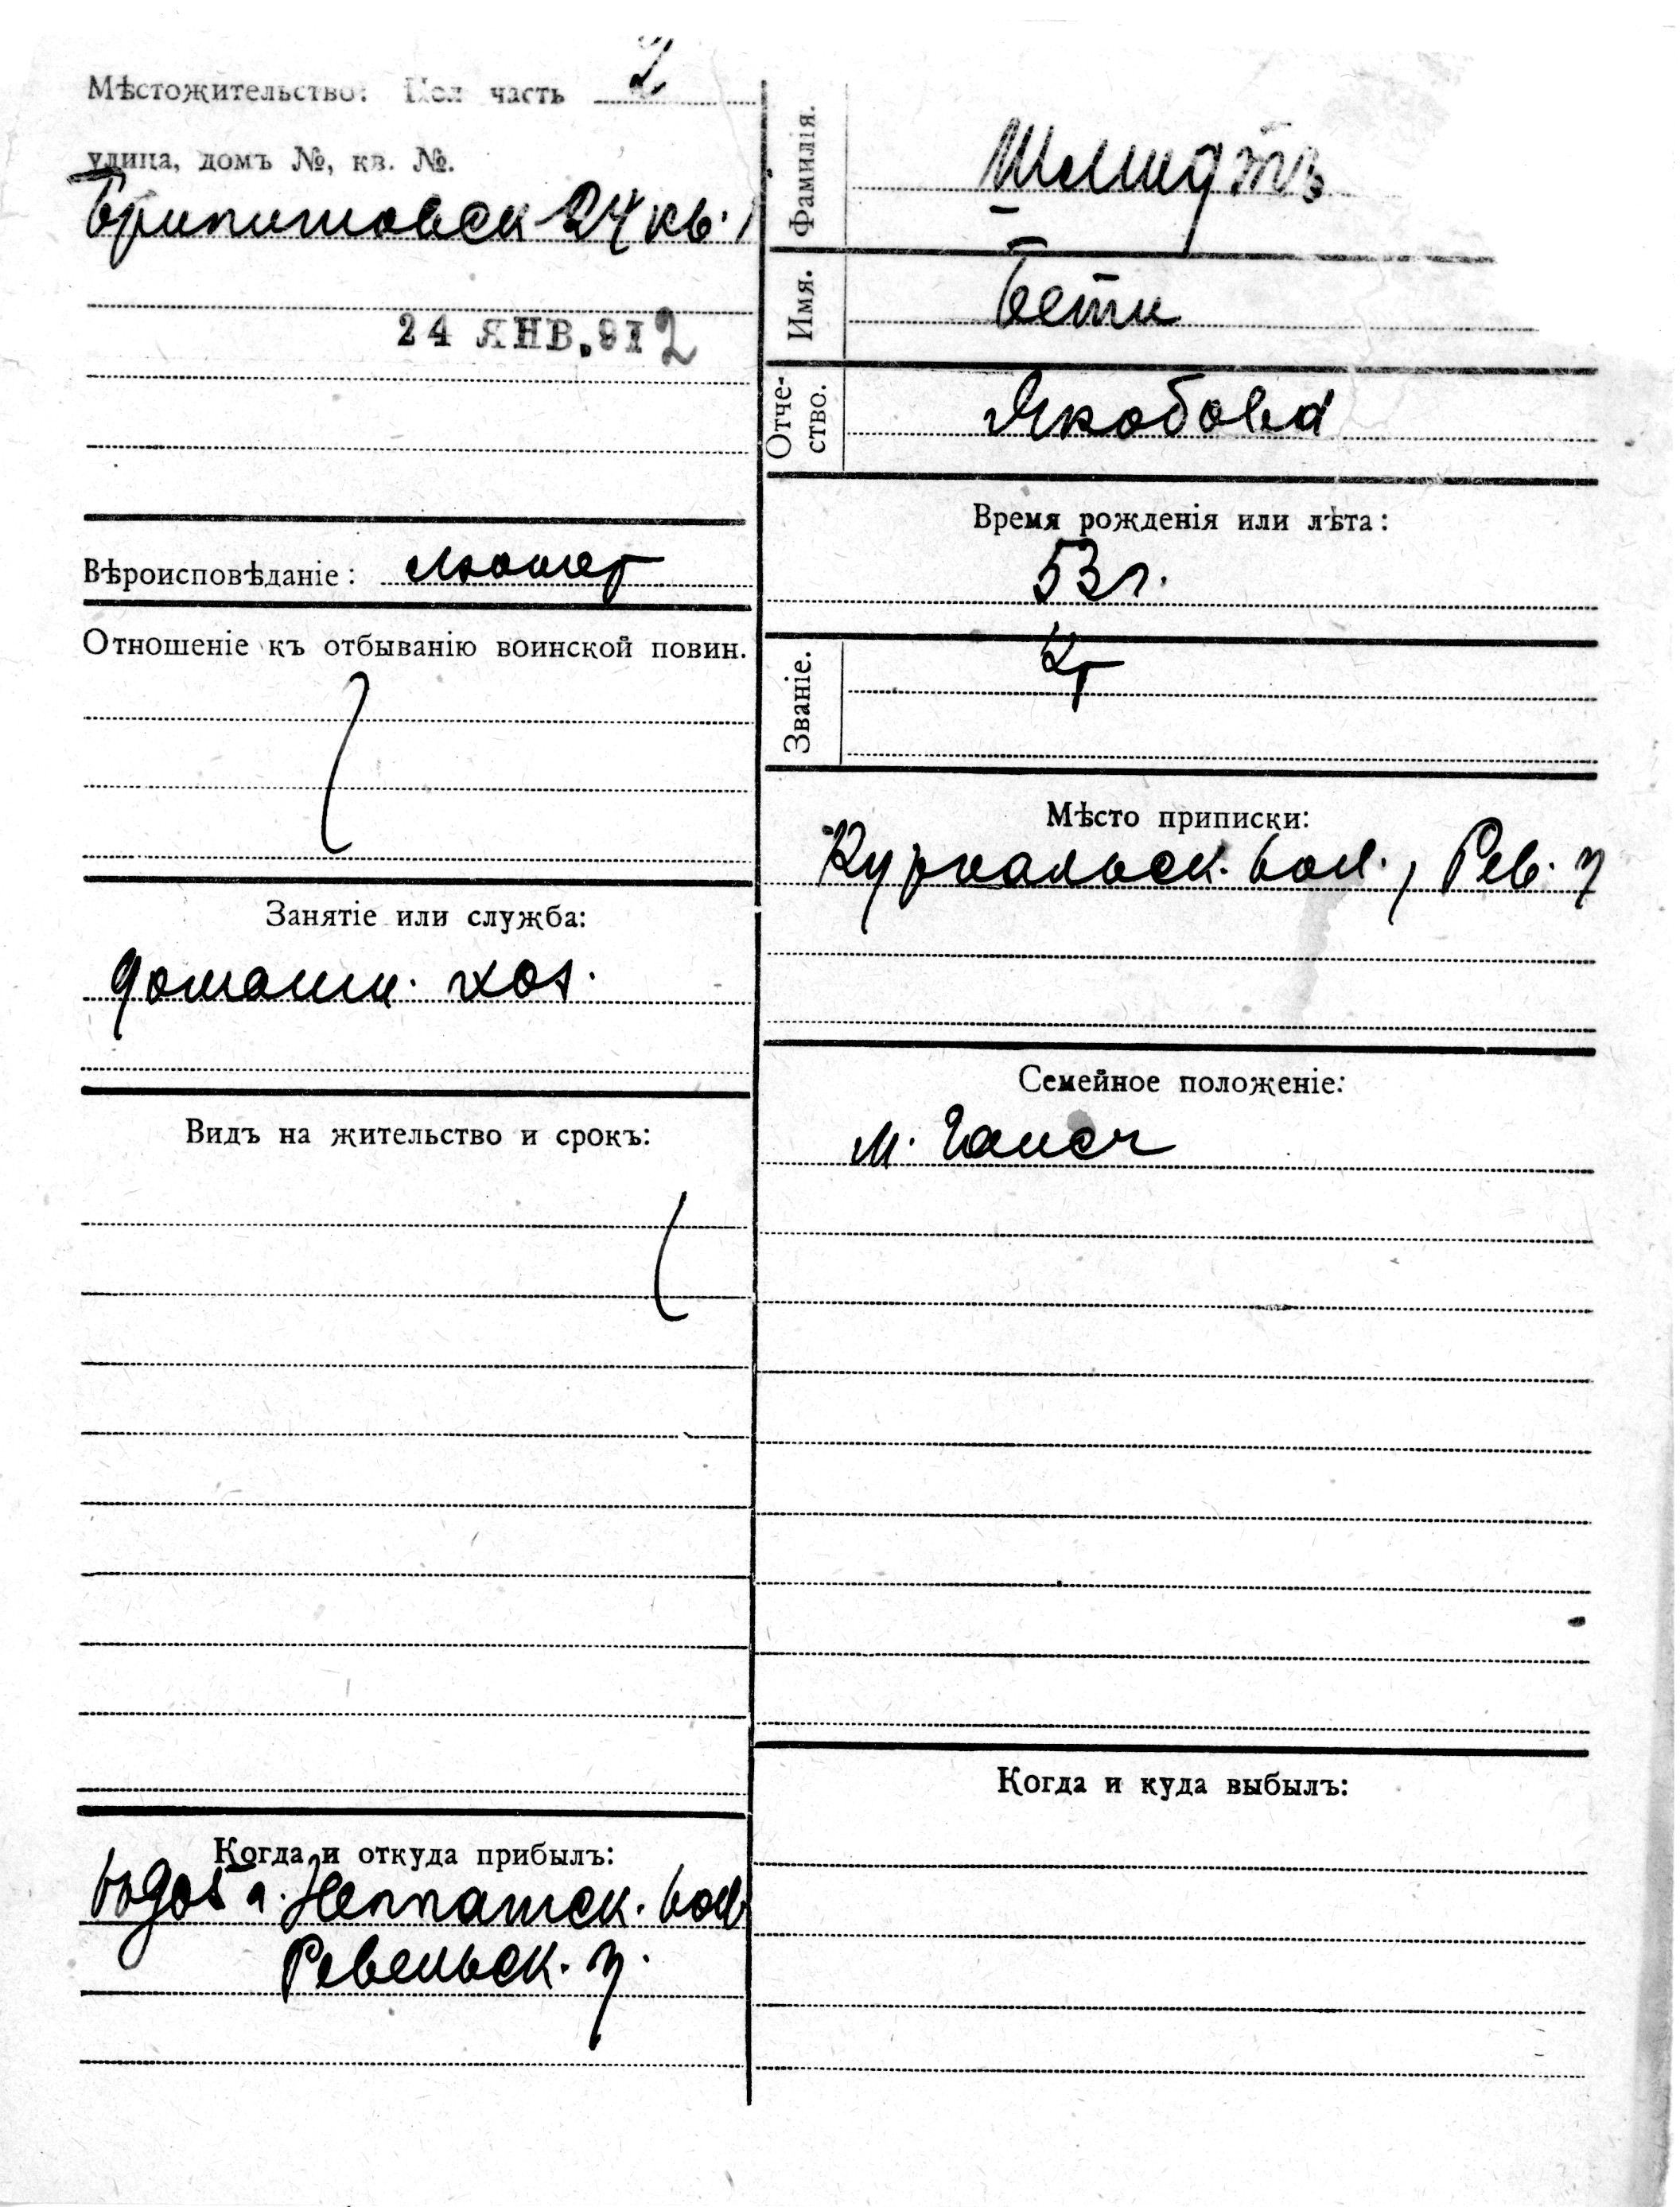 Мѣстожительство: Пол часть 2
улица, домъ №, кв. №.
24 кв. 1
24 ЯНВ. 912
Вѣроисповѣданіе: лютер
Отношеніе къ отбыванію воинской повин.
Занятіе или служба:
домашн. хоз.
Видъ на жительство и срокъ:
Когда и откуда прибылъ:
вол
Ревельск. у.
Фамилія.
Шмидтъ
Имя.
Бети
Отче-
ство.
Якобова
Время рожденія или лѣта:
53 г.
Званіе.
Кр
Мѣсто приписки:
вол., Рев. у
Семейное положеніе:
м. Ганс
Когда и куда выбылъ: